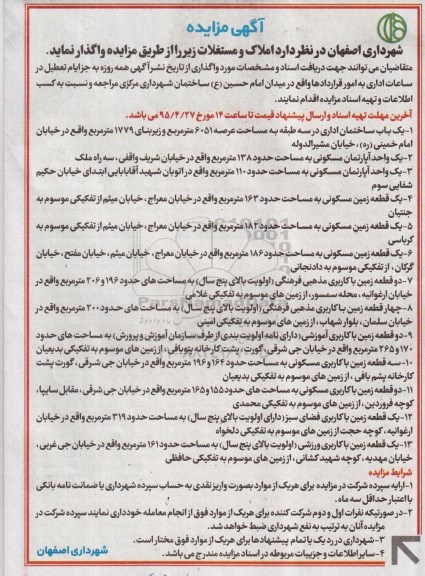 آگهی مزایده
شهرداری اصفهان در نظر دارد املاک و مستغلات زیر را از طریق مزایده واگذار نماید.
متقاضیان می توانند جهت دریافت اسناد و مشخصات مورد واگذاری از تاریخ نشر آگهی همه روزه به جز ایام تعطیل در
ساعات اداری به امور قراردادها واقع در میدان امام حسین (ع) ساختمان شهرداری مرکزی مراجعه و نسبت به کسب
اطلاعات و تهیه اسناد مزایده اقدام نمایند.
آخرین مهلت تهیه اسناد و ارسال پیشنهاد قیمت تا ساعت ۱۴ مورخ ۹۵/۴/۲۷ می باشد.
۱-یک باب ساختمان اداری در سه طبقه به مساحت عرصه ۶۰۵۱ مترمربع و زیربنای ۱۷۷۹ مترمربع واقع در خیابان
امام خمینی (ره)، خیابان مشیرالدوله
۲-یک واحد آپارتمان مسکونی به مساحت حدود ۱۳۸ مترمربع واقع در خیابان شریف واقفی، سه راه ملک
۳-یک واحد آپارتمان مسکونی به مساحت حدود ۱۱۰ مترمربع واقع در اتوبان شهید آقابابایی ابتدای خیابان حکیم
شفایی سوم
۴-یک قطعه زمین مسکونی به مساحت حدود ۱۶۳ مترمربع واقع در خیابان معراج، خیابان میثم از تفکیکی موسوم به
جنتیان
۵-یک قطعه زمین مسکونی به مساحت حدود ۱۸۲ مترمربع واقع در خیابان معراج، خیابان میثم از تفکیکی موسوم به
کرباسی
۶-یک قطعه زمین مسکونی به مساحت حدود ۱۸۶ مترمربع واقع در خیابان معراج، خیابان میثم، خیابان مفتح، خیابان
گرگان، از تفکیکی موسوم به دادنجانی
۷-دو قطعه زمین با کاربری مذهبی فرهنگی (اولویت بالای پنج سال) به مساحت های حدود ۱۹۶ و ۲۰۶ مترمربع واقع در
خیابان ارغوانیه، محله سمسور، از زمین های موسوم به تفکیکی غلامی
۸-چهار قطعه زمین با کاربری مذهبی فرهنگی (اولویت بالای پنج سال) به مساحت های حدود ۲۰۰ مترمربع واقع در
خیابان سلمان، بلوار شهاب، از زمین های موسوم به تفکیکی امینی
۹-دو قطعه زمین با کاربری آموزشی (دارای نامه اولویت بندی از طرف سازمان آموزش و پرورش) به مساحت های حدود
۱۷۰ و ۲۶۵ مترمربع واقع در خیابان جی شرقی، گورت، پشت کارخانه پتوبافی، از زمین های موسوم به تفکیکی بدیعیان
۱۰-سه قطعه زمین با کاربری مسکونی به مساحت حدود ۱۶۴ و ۱۹۶ مترمربع واقع در خیابان جی شرقی، گورت پشت
کارخانه پشم بافی، از زمین های موسوم به تفکیکی بدیعیان
۱۱-دو قطعه زمین با کاربری مسکونی به مساحت های حدود ۱۵۵ و ۱۶۵ مترمربع واقع در خیابان جی شرقی، مقابل سایپا،
کوچه فروردین، از زمین های موسوم به تفکیکی محمدی
۱۲-یک قطعه زمین با کاربری فضای سبز (دارای اولویت بالای پنج سال) به مساحت حدود ۳۱۹ مترمربع واقع در خیابان
ارغوانیه، کوچه حجت از زمین های موسوم به تفکیکی دلخواه
۱۳-یک قطعه زمین با کاربری ورزشی (اولویت بالای پنج سال) به مساحت حدود ۱۶۱ مترمربع واقع در خیابان جی غربی،
خیابان مهدیه، کوچه شهید کشانی، از زمین های موسوم به تفکیکی حافظی
شرایط مزایده
۱-ارایه سپرده شرکت در مزایده برای هریک از موارد بصورت واریز نقدی به حساب سپرده شهرداری یا ضمانت نامه بانکی
با اعتبار حداقل سه ماه.
۲-در صورتیکه نفرات اول و دوم شرکت کننده برای هریک از موارد فوق از انجام معامله خودداری نمایند سپرده شرکت در
مزایده آنان به ترتیب به نفع شهرداری ضبط خواهد شد.
۳-شهرداری در رد یک یا تمام پیشنهادها برای هریک از موارد فوق مختار است.
۴-سایر اطلاعات و جزییات مربوطه در اسناد مزایده مندرج می باشد.
شهرداری اصفهان